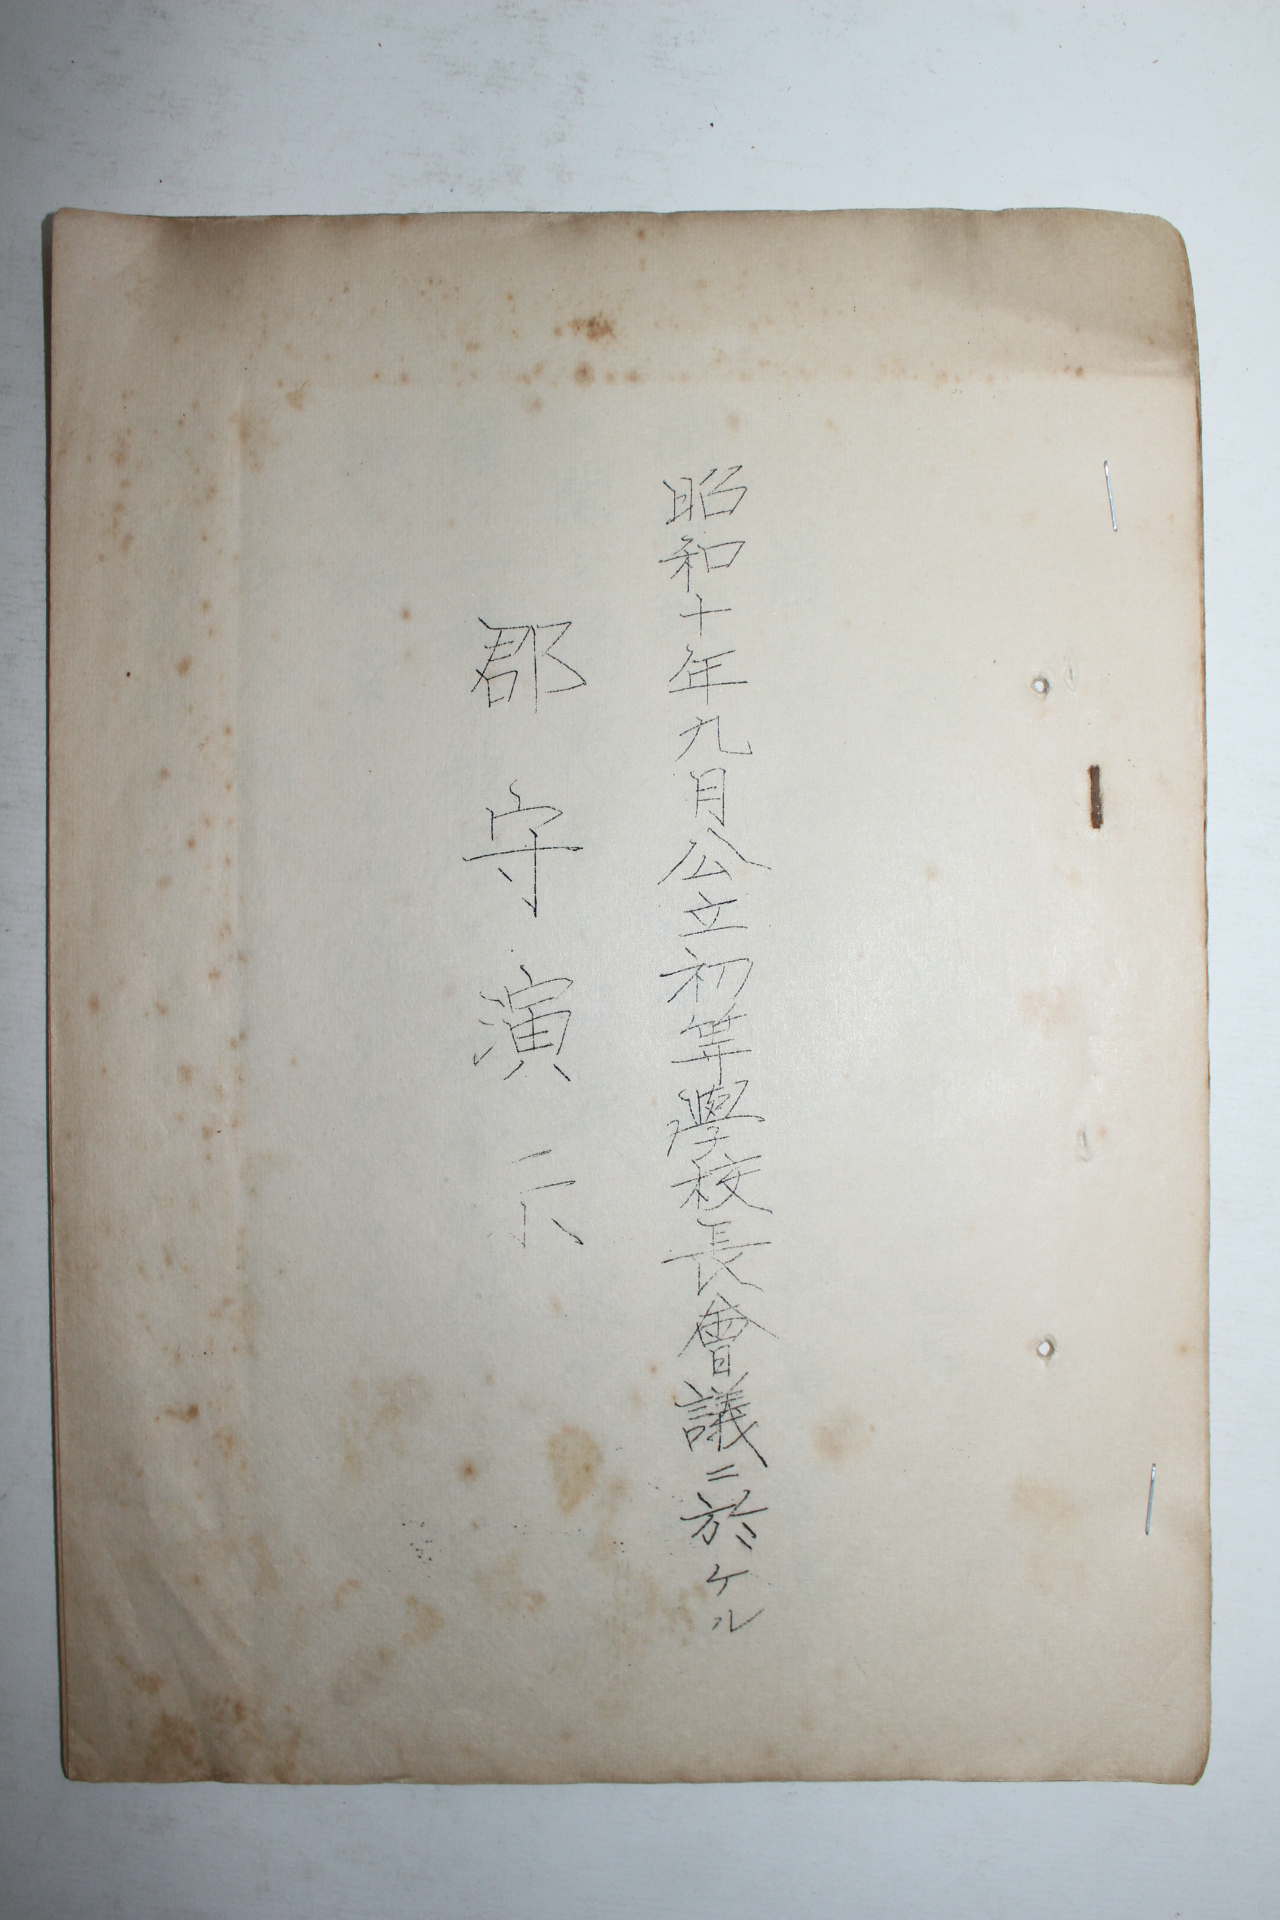 昭和十年九月公立初等學校長會議ニ於ケル
郡守演示